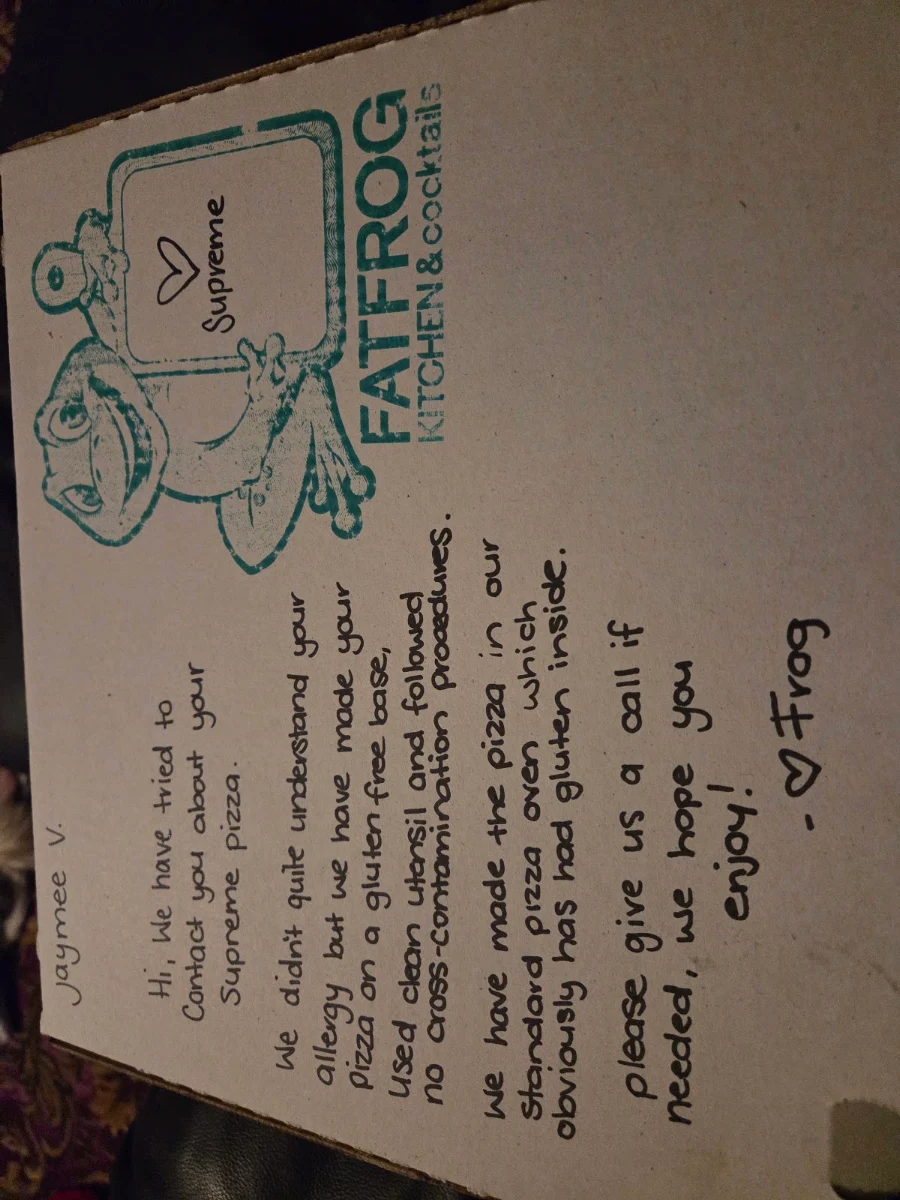 Jaymee V.
Hi, We have tried to
Contact you about your
Supreme pizza.
We didn't quite understand your
allergy but we have made your
pizza on a gluten free base,
used clean utensil and followed
no cross-contamination procedures.
We have made the pizza in our
standard pizza oven which
obviously has had gluten inside.
please give us a call if
needed, we hope you
enjoy!
- ♡ Frog
♡
Supreme
FATFROG
KITCHEN & cocktails